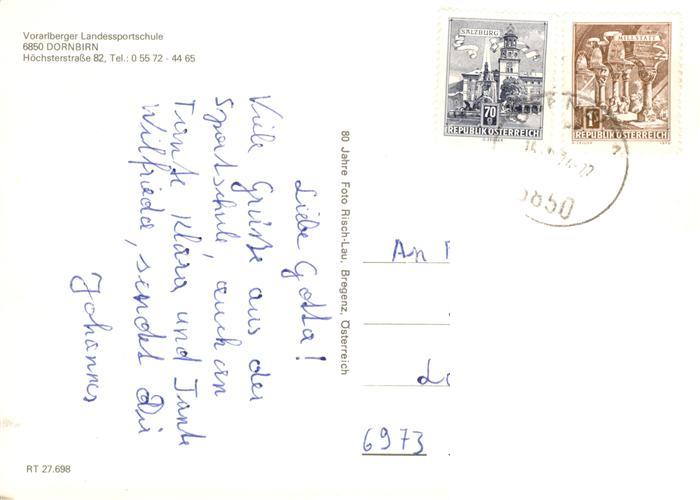 Vorarlberger Landessportschule
6850 DORNBIRN
Höchsterstraße 82, Tel.: 0 55 72 - 44 65
SALZBURG
70
REPUBLIK ÖSTERREICH
MILLSTATT
1
REPUBLIK ÖSTERREICH
6850
Liebe Gotta!
Viele Grüße aus der
Sportschule, auch an
Tante Klara und Tante
Wilfrieda, sendet Dir
Johannes
80 Jahre Foto Risch-Lau, Bregenz, Österreich
An
6973
RT 27.698